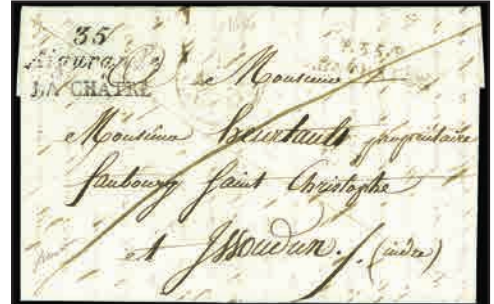 35
Aigurande
LA CHATRE
35
a Monsieur
Monsieur heurtault propriétaire
faubourg Saint Christophe
et Issoudun. (indre)